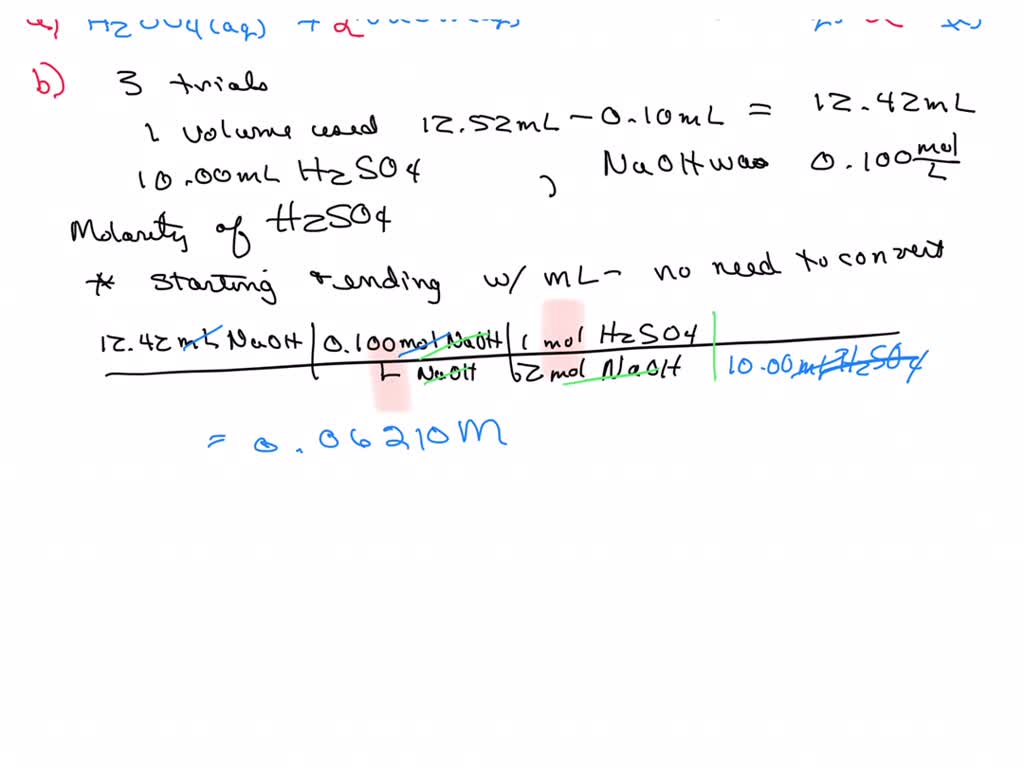 a) H2SO4(aq) + 2
b) 3 trials
1 volume used 12.52mL - 0.10mL = 12.42mL
10.00mL H2SO4 , NaOH was 0.100 mol/L
Molarity of H2SO4
* starting + ending w/ mL - no need to convert
12.42 mL NaOH | 0.100 mol NaOH | 1 mol H2SO4 |
L NaOH | 2 mol NaOH | 10.00 mL H2SO4
= 0.06210 M